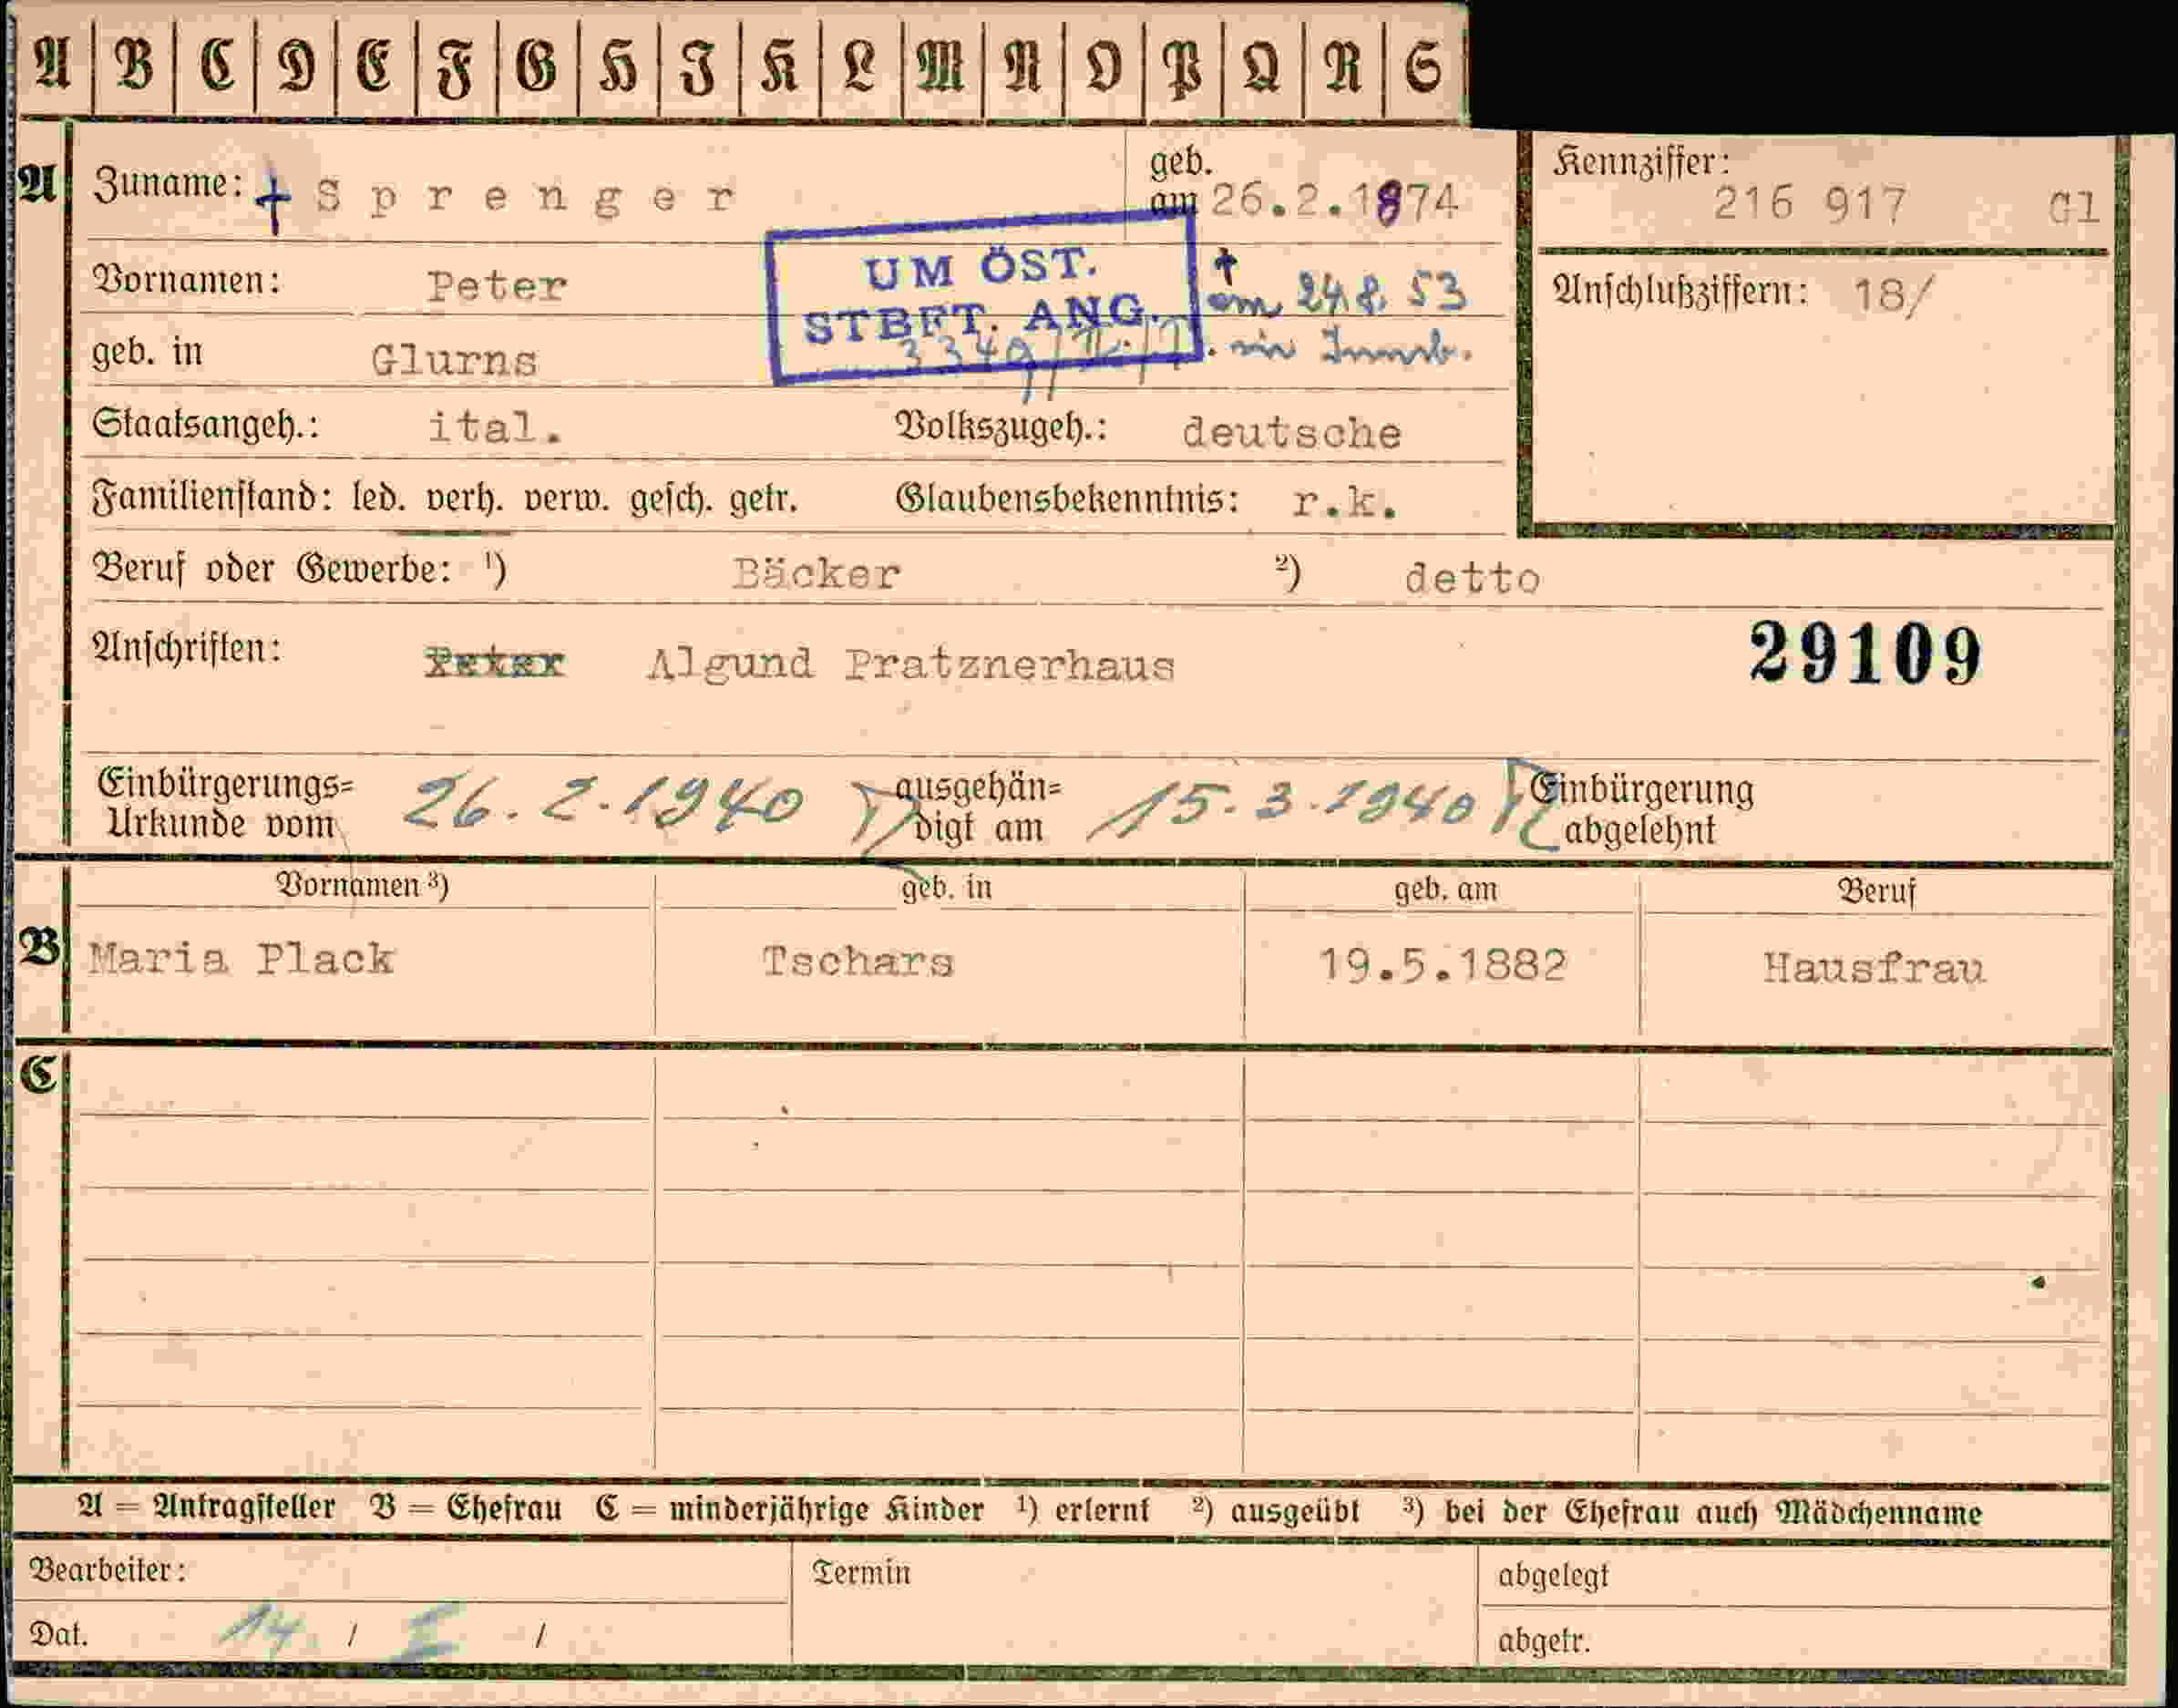 A B C D E F G H I K L M N O P Q R S
A Zuname: † Sprenger geb. am 26.2.1874
Kennziffer: 216 917 Gl
UM ÖST. STBFT. ANG.
Vornamen: Peter
† am 24.8.53
Anschlußziffern: 18/
geb. in Glurns
in Innsb.
Staatsangeh.: ital. Volkszugeh.: deutsche
Familienstand: led. verh. verw. gesch. getr. Glaubensbekenntnis: r.k.
Beruf oder Gewerbe: ¹) Bäcker ²) detto
Anschriften: Algund Pratznerhaus 29109
Einbürgerungs=
Urkunde vom 26.2.1940
ausgehän=
digt am 15.3.1940
Einbürgerung
abgelehnt
Vornamen ³) geb. in geb. am Beruf
B Maria Plack Tschars 19.5.1882 Hausfrau
C
A = Antragsteller B = Ehefrau C = minderjährige Kinder ¹) erlernt ²) ausgeübt ³) bei der Ehefrau auch Mädchenname
Bearbeiter: Termin abgelegt
Dat. 14 / I / abgetr.